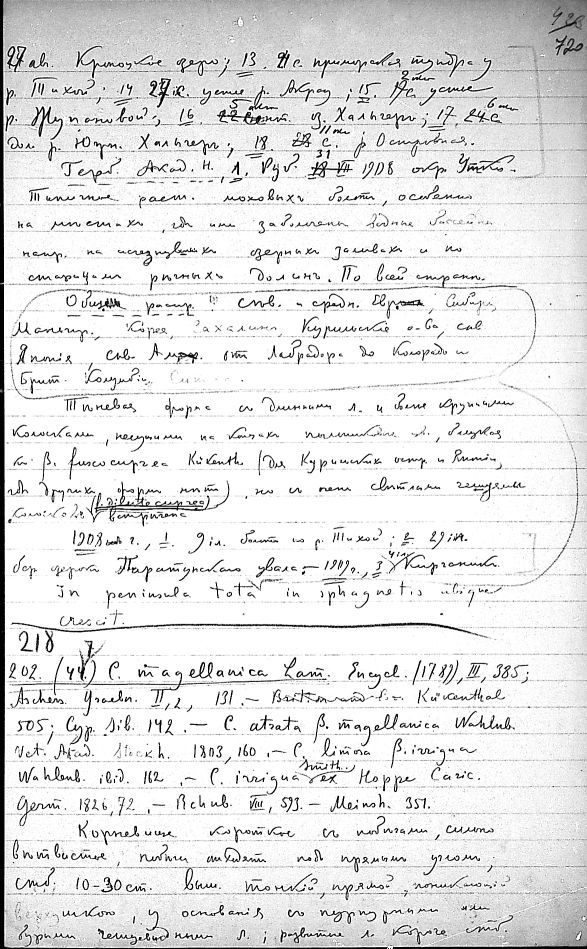 426
720
27 ав. Кроноцкое озеро; 13. 21 с. приморская тундра у
р. Тихой; 14 27 ік. устье р. Акрау; 15. 17с. устье
р. Жупановой; 16. 5 окт. оз. Халыгеръ; 17. 24 с. 6 окт.
дол. р. Юпи. Халыгеръ; 18. с. 11 ок. р. Островная.
Герб. Акад. Н., 1. Руб. 31 VII 1908 окр. Утко.
Типичное раст. моховыхъ болотъ, особенно
на мѣстахъ, гдѣ ими заболочены водные бассейны
напр. на исчезнувшихъ озерныхъ заливахъ и по
старицамъ рѣчныхъ долинъ. По всей странѣ.
Общее распр. сѣв. и средн. Европа, Сибирь,
Манчжур., Корея, Сахалинъ, Курильские о-ва, сѣв.
Японія, сѣв. Амер. от Лабрадора до Колорадо и
Брит. Колумбіи
Тѣневая форма съ длинными л. и болѣе крупными
колосками, несущими на концахъ цв., близкая
къ β. fuscocuprea Kükenth. (для Курильскихъ остр. и Японіи,
гдѣ другихъ формъ нѣтъ), но съ очень свѣтлыми чешуями
колосковъ (f. dilutecuprea) встрѣчена
1908 г., 1. 9 іл. болото по р. Тихой; 2. 29 іл.
бер. озерка Паратунскаго увала. – 1909 г., 3 4 іл. Кирганик.
In peninsula tota in sphagnetis ubique
crescit.
218 7
202. (44) C. magellanica Lam. Encycl. (1789), III, 385;
Aschers. Graebn. II, 2, 131. – Kükenthal
505; Cyp. Sib. 142. – C. atrata β. magellanica Wahlnb.
Vet. Akad. Stockh. 1803, 160. – C. limosa β. irrigua
Wahlenb. ibid. 162. – C. irrigua Smith. ex Hoppe Caric.
Germ. 1826, 72. – Rchnb. VIII, 593. – Meinsh. 351.
Корневище короткое съ побѣгами, сильно
вѣтвистое, побѣги отходятъ подъ прямымъ угломъ;
стб. 10-30 ст. выш. тонкій, прямой, поникающій
верхушкою, у основанія съ пурпурными или
бурыми чешуевидными л.; развитые л. короче стб.